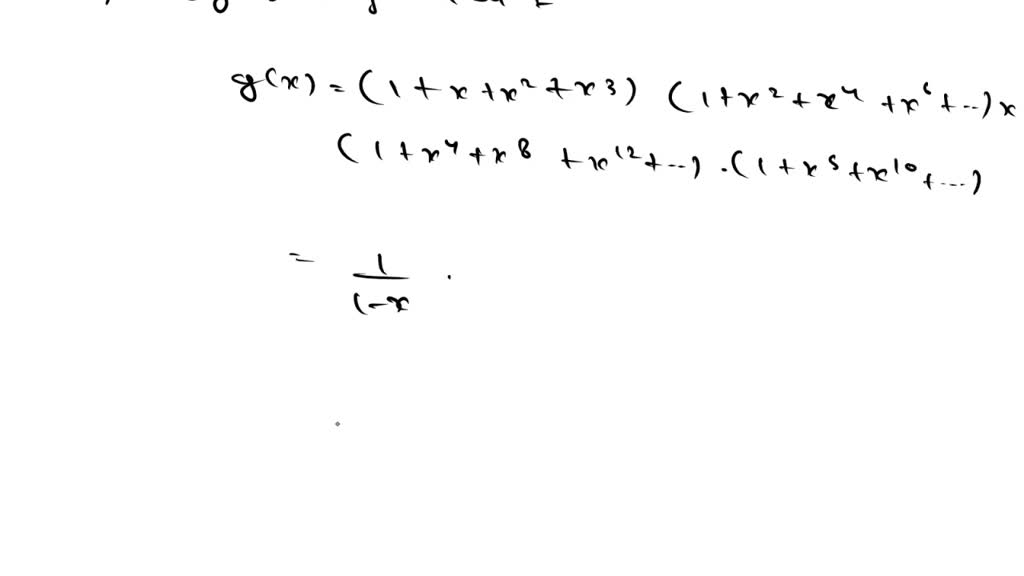 g(x) = (1 + x + x² + x³) (1 + x² + x⁴ + x⁶ + ...) x
(1 + x⁴ + x⁸ + x¹² + ...) . (1 + x⁵ + x¹⁰ + ...)
= 1/(1-x) .